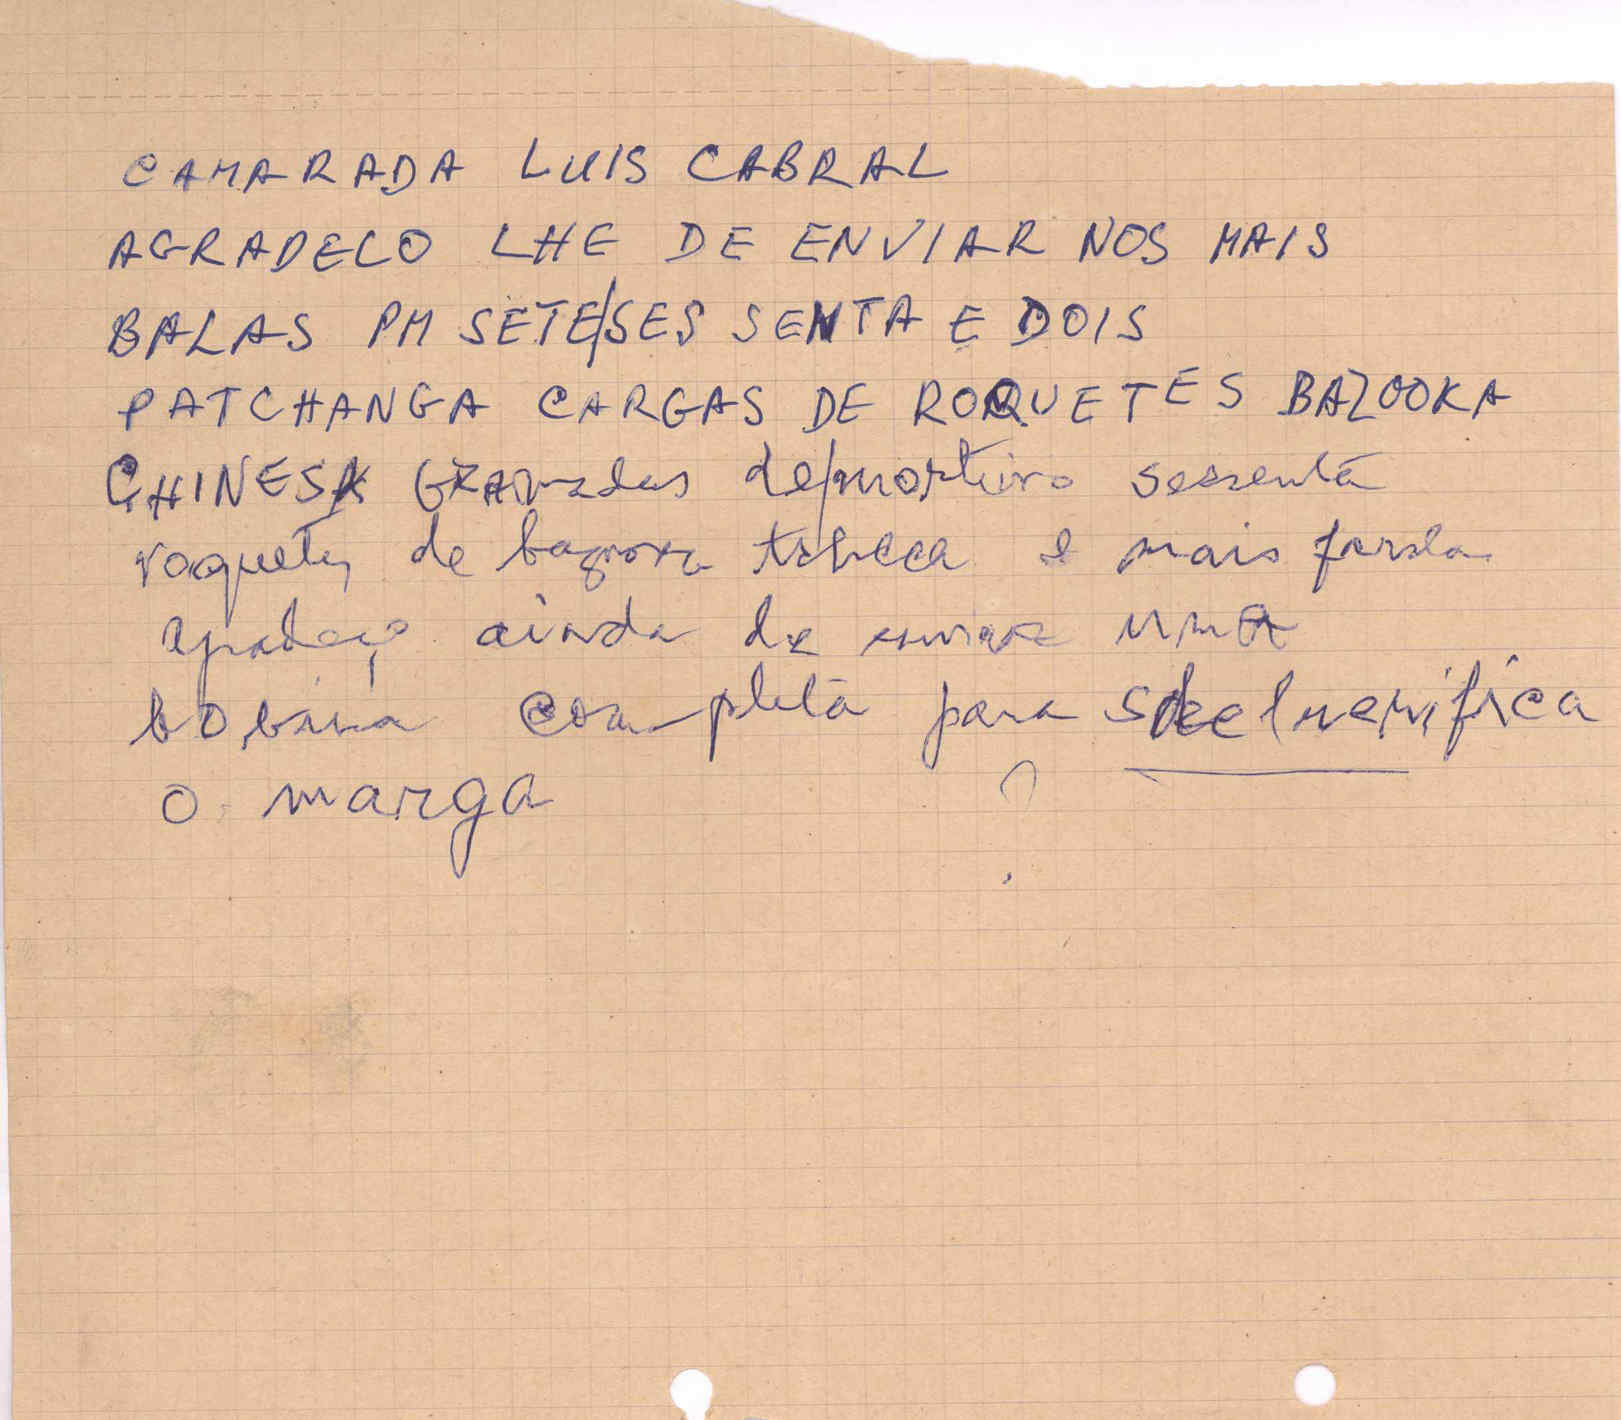 CAMARADA LUIS CABRAL
AGRADECO LHE DE ENVIAR NOS MAIS
BALAS PM SETE/SES SENTA E DOIS
PATCHANGA CARGAS DE ROQUETES BAZOOKA
CHINESA GRANadas de/morteiro sessenta
roquets de bazooka tcheca e mais farda
agradeço ainda de enviar uma
bobina completa para
o marga